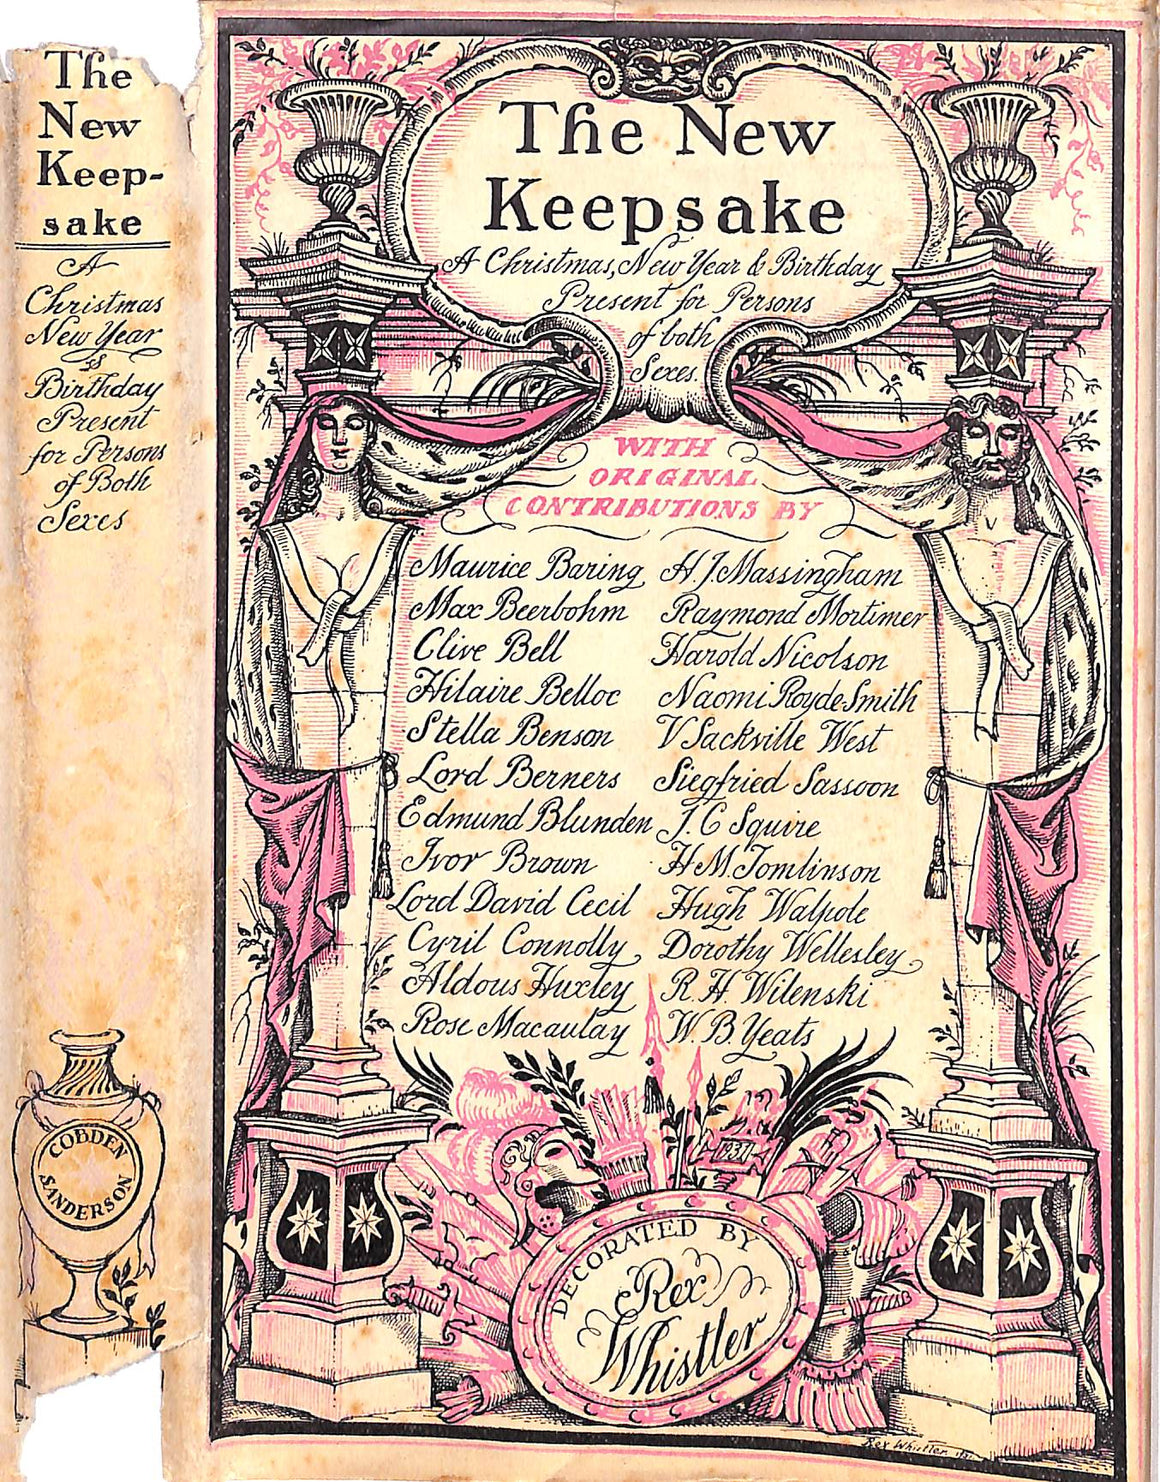 The
New
Keep-
sake
A
Christmas
New Year
&
Birthday
Present
for Persons
of Both
Sexes
COBDEN
SANDERSON
The New
Keepsake
A Christmas, New Year & Birthday
Present for Persons
of both
Sexes.
WITH
ORIGINAL
CONTRIBUTIONS BY
Maurice Baring
Max Beerbohm
Clive Bell
Hilaire Belloc
Stella Benson
Lord Berners
Edmund Blunden
Ivor Brown
Lord David Cecil
Cyril Connolly
Aldous Huxley
Rose Macaulay
H. J. Massingham
Raymond Mortimer
Harold Nicolson
Naomi Royde-Smith
V Sackville West
Siegfried Sassoon
J. C Squire
H. M. Tomlinson
Hugh Walpole
Dorothy Wellesley
R. H. Wilenski
W. B. Yeats
DECORATED BY
Rex
Whistler
Rex Whistler